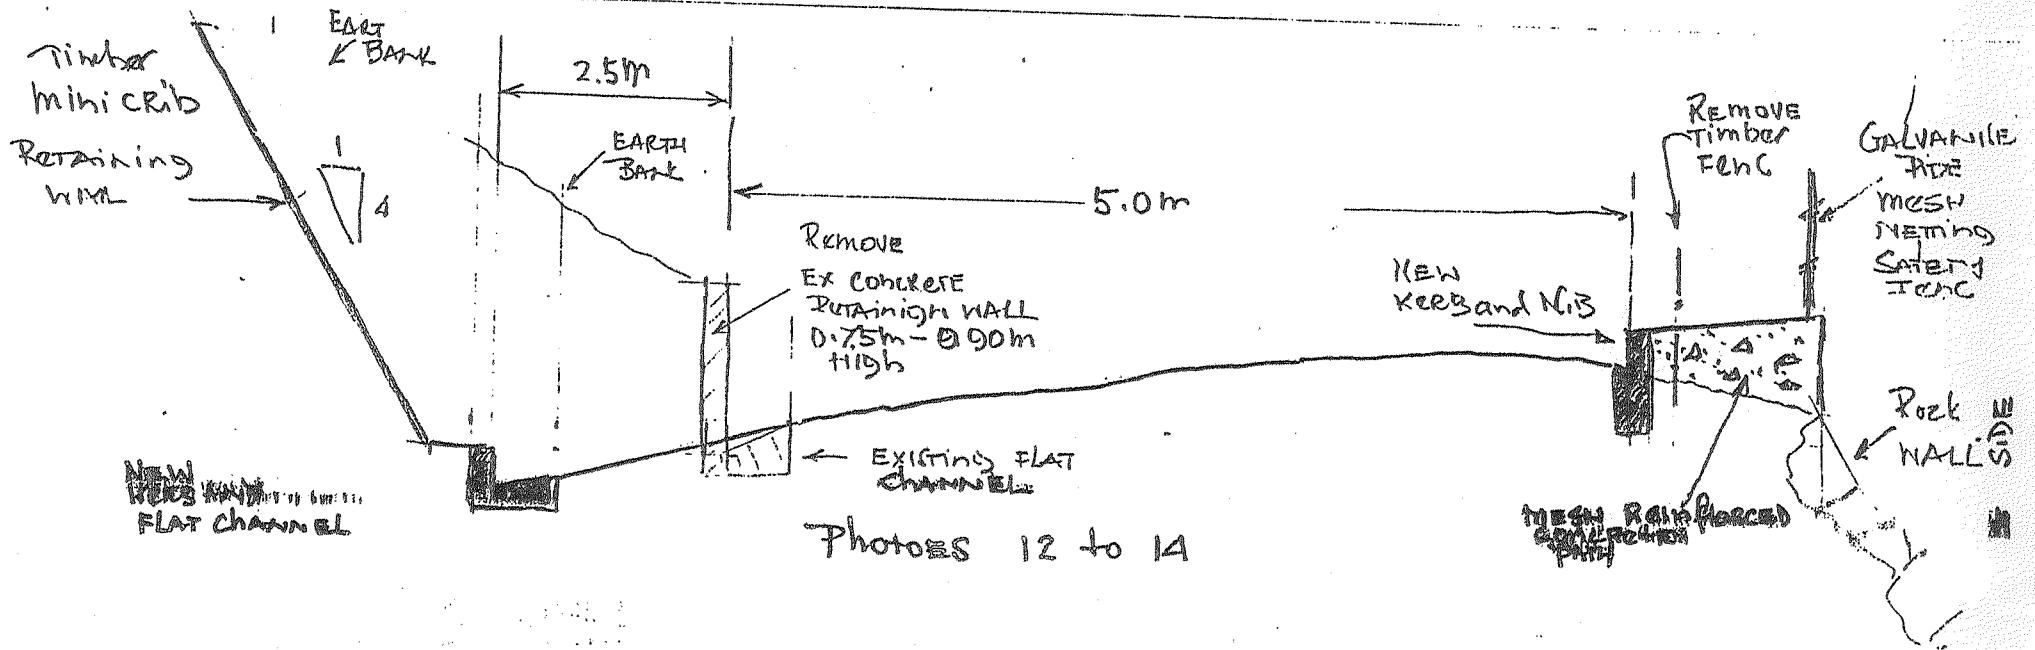 EART
BANK
Timber
mini CRib
Retaining
WAL
1
4
2.5m
EARTH
BANK
5.0m
Remove
Ex Concrete
Retainign WALL
0.75m - 0.90m
High
EXISTING FLAT
CHANNEL
NEW
FLAT CHANNEL
Photoes 12 to 14
NEW
KERB and NiB
REMOVE
Timber
FenC
GALVANISE
PIPE
MESH
NETTING
SAFETY
FenC
Rock
WALL
SIDE
MESH REINFORCED
CONCRETE
PATH